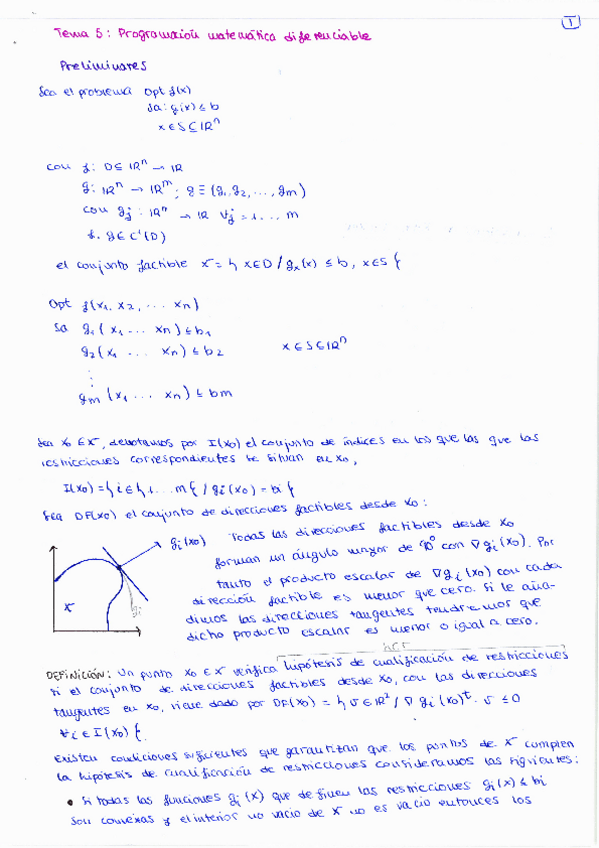 1
Tema 5: Programación matemática diferenciable
Preliminares
Sea el problema Opt f(x)
sa: g(x) ≤ b
x ∈ S ⊆ ℝⁿ
con f: D ⊆ ℝⁿ → ℝ
g: ℝⁿ → ℝᵐ; g ≡ (g₁, g₂, ..., gm)
con gj: ℝⁿ → ℝ ∀j = 1 .... m
f, g ∈ C¹(D)
el conjunto factible X = { x ∈ D / gx(x) ≤ b, x ∈ S }
Opt f(x₁, x₂, ... xn)
sa g₁(x₁ ... xn) ≤ b₁
g₂(x₁ ... xn) ≤ b₂ x ∈ S ⊆ ℝⁿ
⋮
gm(x₁ ... xn) ≤ bm
Sea x₀ ∈ X, denotamos por I(x₀) el conjunto de índices en los que las que las
restricciones correspondientes se situan en x₀,
I(x₀) = { i ∈ { 1 ... m } / gi(x₀) = bi }
Sea DF(x₀) el conjunto de direcciones factibles desde x₀:
gi(x₀) Todas las direcciones factibles desde x₀
forman un ángulo mayor de 90° con ∇gi(x₀). Por
tanto el producto escalar de ∇gi(x₀) con cada
dirección factible es menor que cero. Si le aña-
dimos las direcciones tangentes tendremos que
dicho producto escalar es menor o igual a cero.
X
gi
HCR
DEFINICIÓN: Un punto x₀ ∈ X verifica hipótesis de cualificación de restricciones
si el conjunto de direcciones factibles desde x₀, con las direcciones
tangentes en x₀, viene dado por DF(x₀) = { v ∈ ℝ² / ∇gi(x₀)ᵗ · v ≤ 0
∀i ∈ I(x₀) }.
Existen condiciones suficientes que garantizan que los puntos de X cumplen
la hipótesis de cualificación de restricciones consideramos las siguientes:
• Si todas las funciones gi(x) que definen las restricciones gi(x) ≤ bi
son convexas y el interior no vacio de X no es vacio entonces los